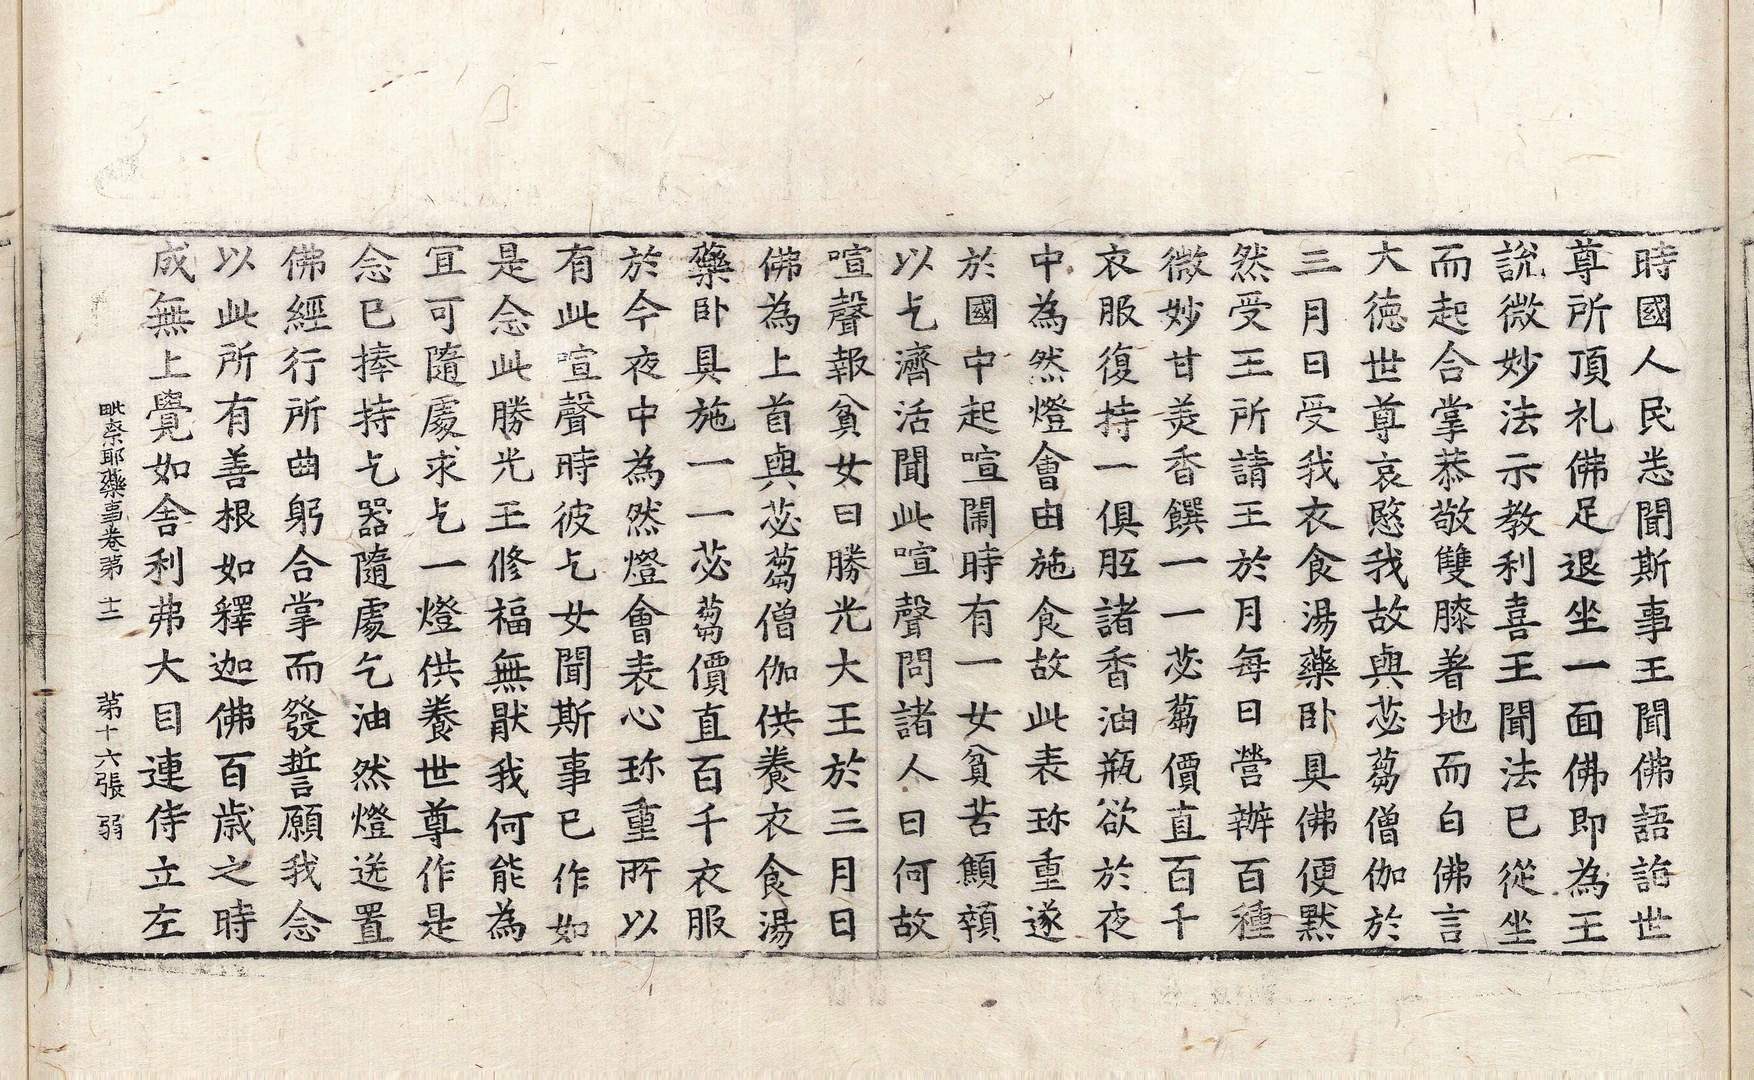 時國人民悉聞斯事王聞佛語詣世
尊所頂礼佛足退坐一面佛即為王
說微妙法示教利喜王聞法已從坐
而起合掌恭敬雙膝著地而白佛言
大德世尊哀愍我故與苾蒭僧伽於
三月日受我衣食湯藥卧具佛便默
然受王所請王於月每日營辦百種
微妙甘美香饌一一苾蒭價直百千
衣服復持一俱胝諸香油瓶欲於夜
中為然燈會由施食故此表珎重遂
於國中起喧閙時有一女貧苦顦顇
以乞濟活聞此喧聲問諸人曰何故
喧聲報貧女曰勝光大王於三月日
佛為上首與苾蒭僧伽供養衣食湯
藥卧具施一一苾蒭價直百千衣服
於今夜中為然燈會表心珎重所以
有此喧聲時彼乞女聞斯事已作如
是念此勝光王修福無猒我何能為
宜可隨處求乞一燈供養世尊作是
念已捧持乞器隨處乞油然燈送置
佛經行所曲躬合掌而發誓願我念
以此所有善根如釋迦佛百歲之時
成無上覺如舍利弗大目連侍立左
毗奈耶藥事卷第十二 第十六張 弱